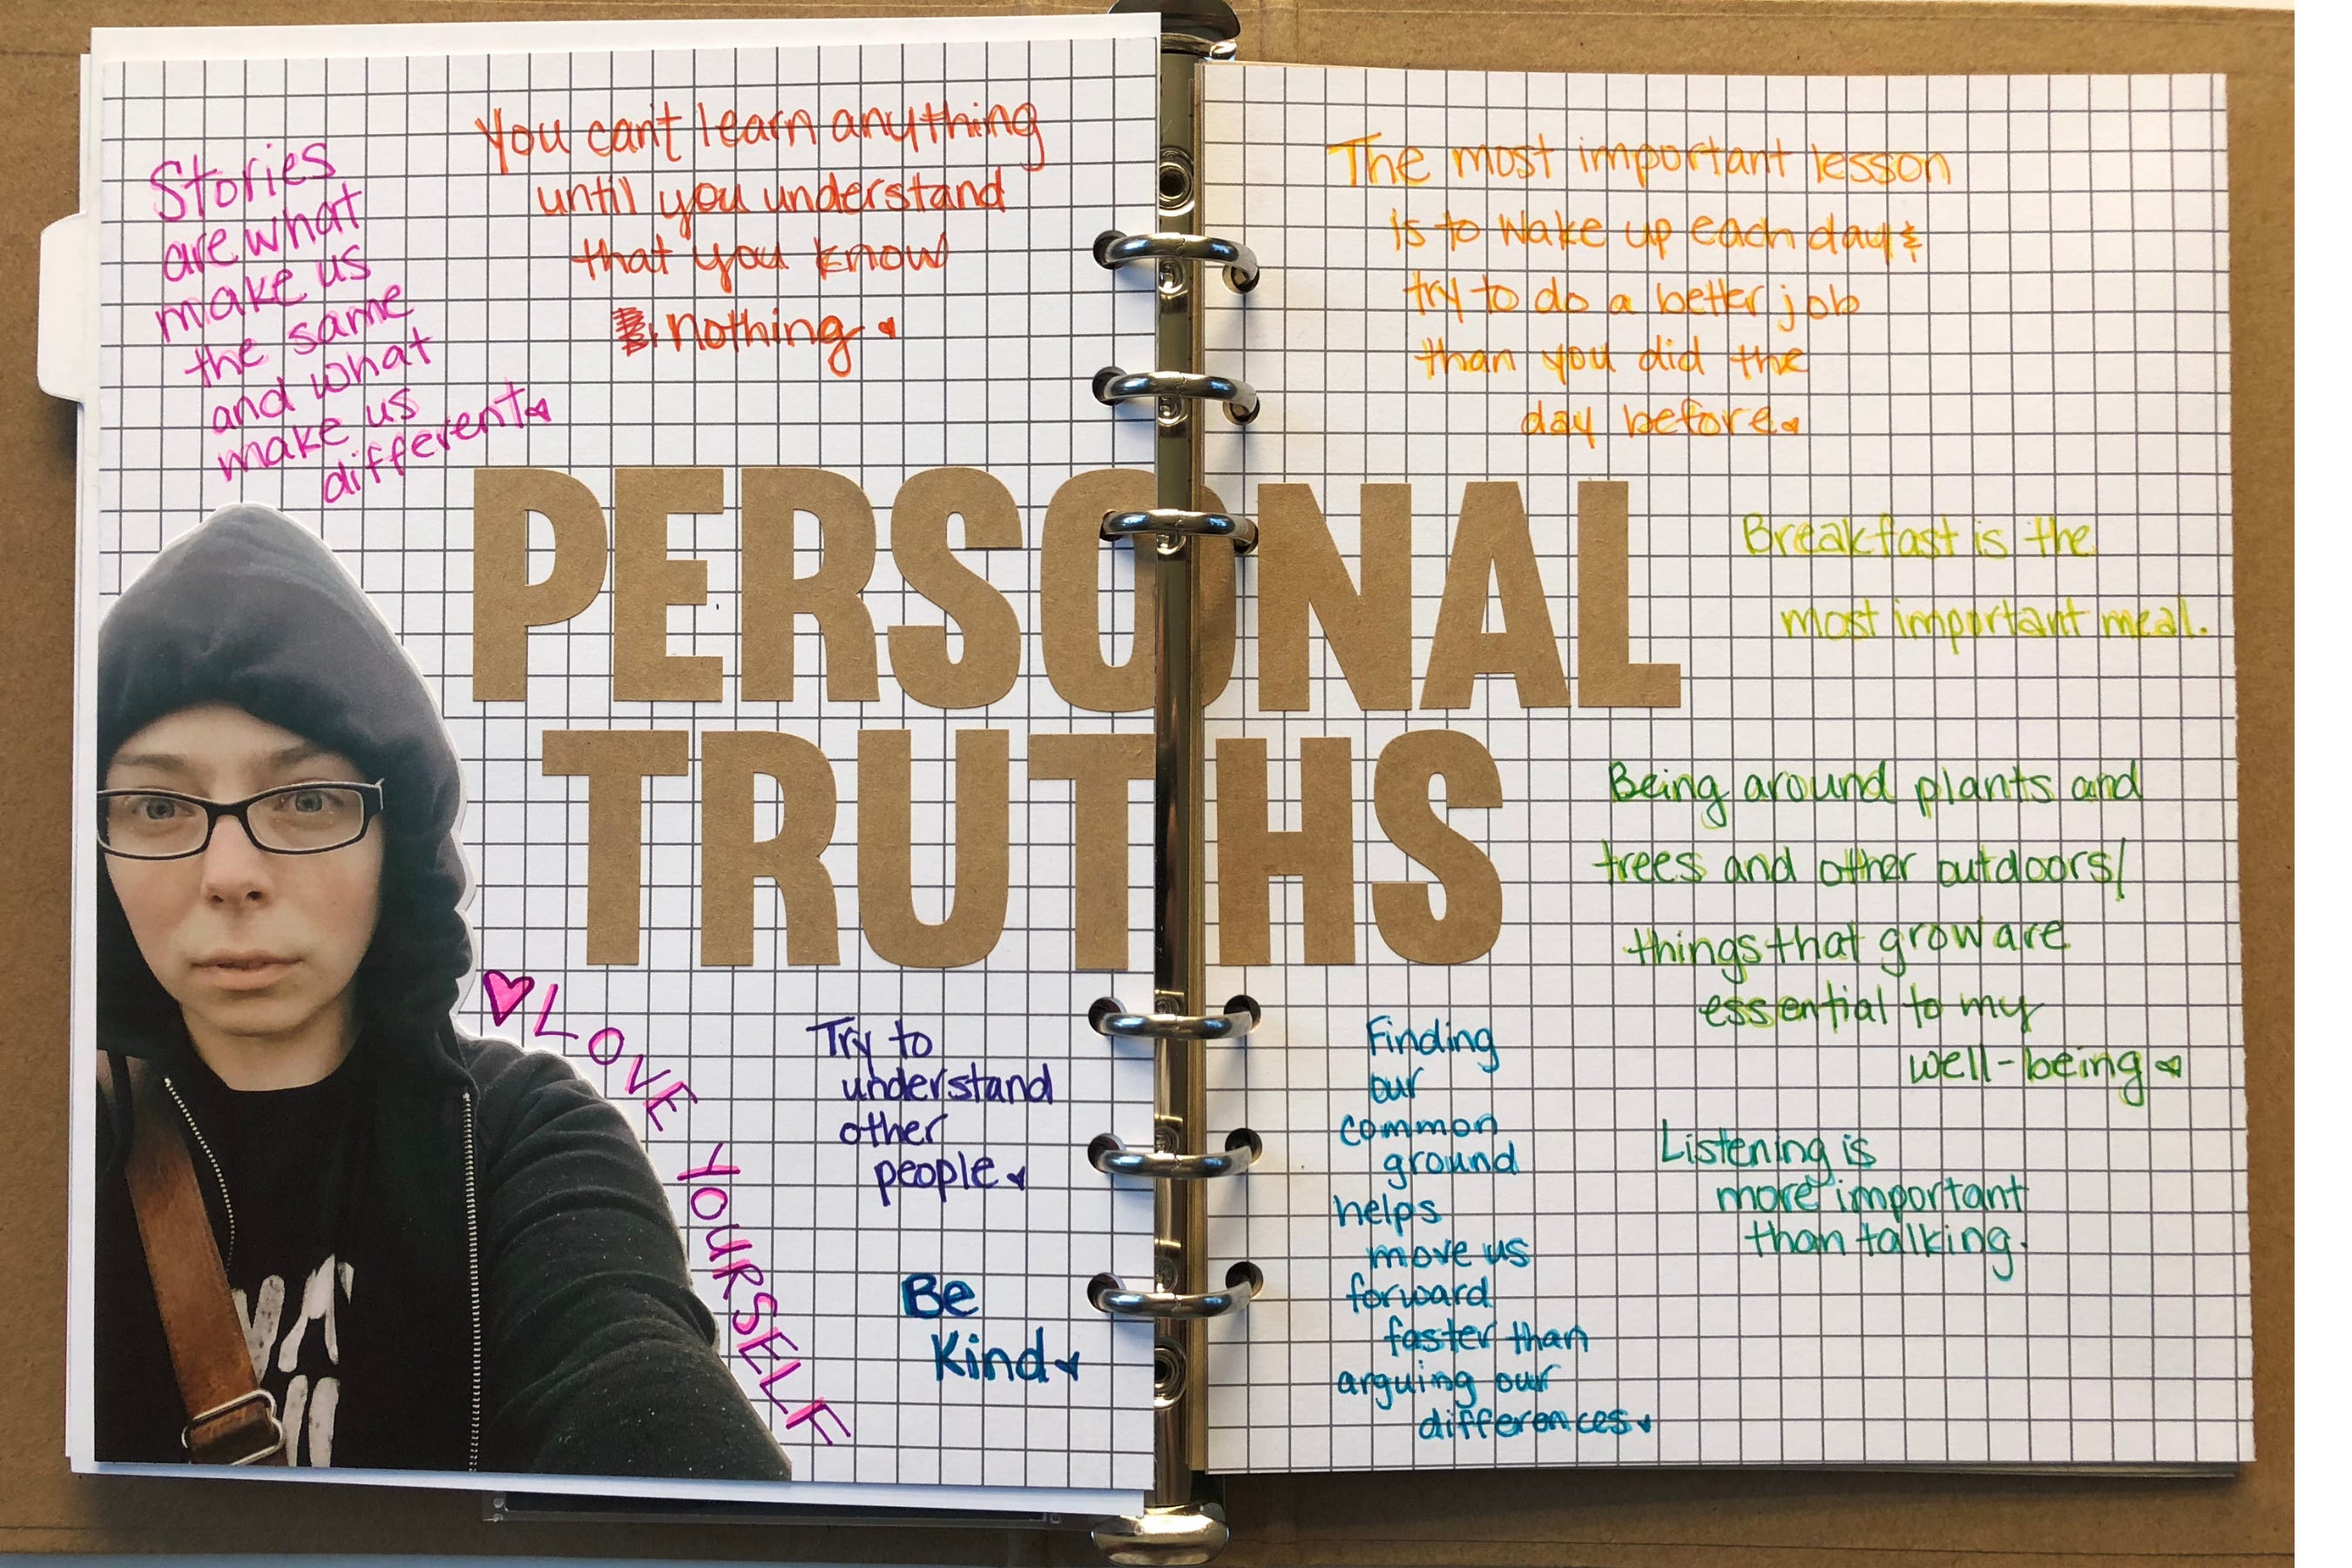 Stories
are what
make us
the same
and what
make us
different
You can't learn anything
until you understand
that you know
nothing
PERSONAL
TRUTHS
LOVE YOURSELF
Try to
understand
other
people
Be
Kind
The most important lesson
is to wake up each day &
try to do a better job
than you did the
day before
Breakfast is the
most important meal.
Being around plants and
trees and other outdoors/
things that grow are
essential to my
well-being
Finding
our
common
ground
helps
move us
forward
faster than
arguing our
differences
Listening is
more important
than talking.